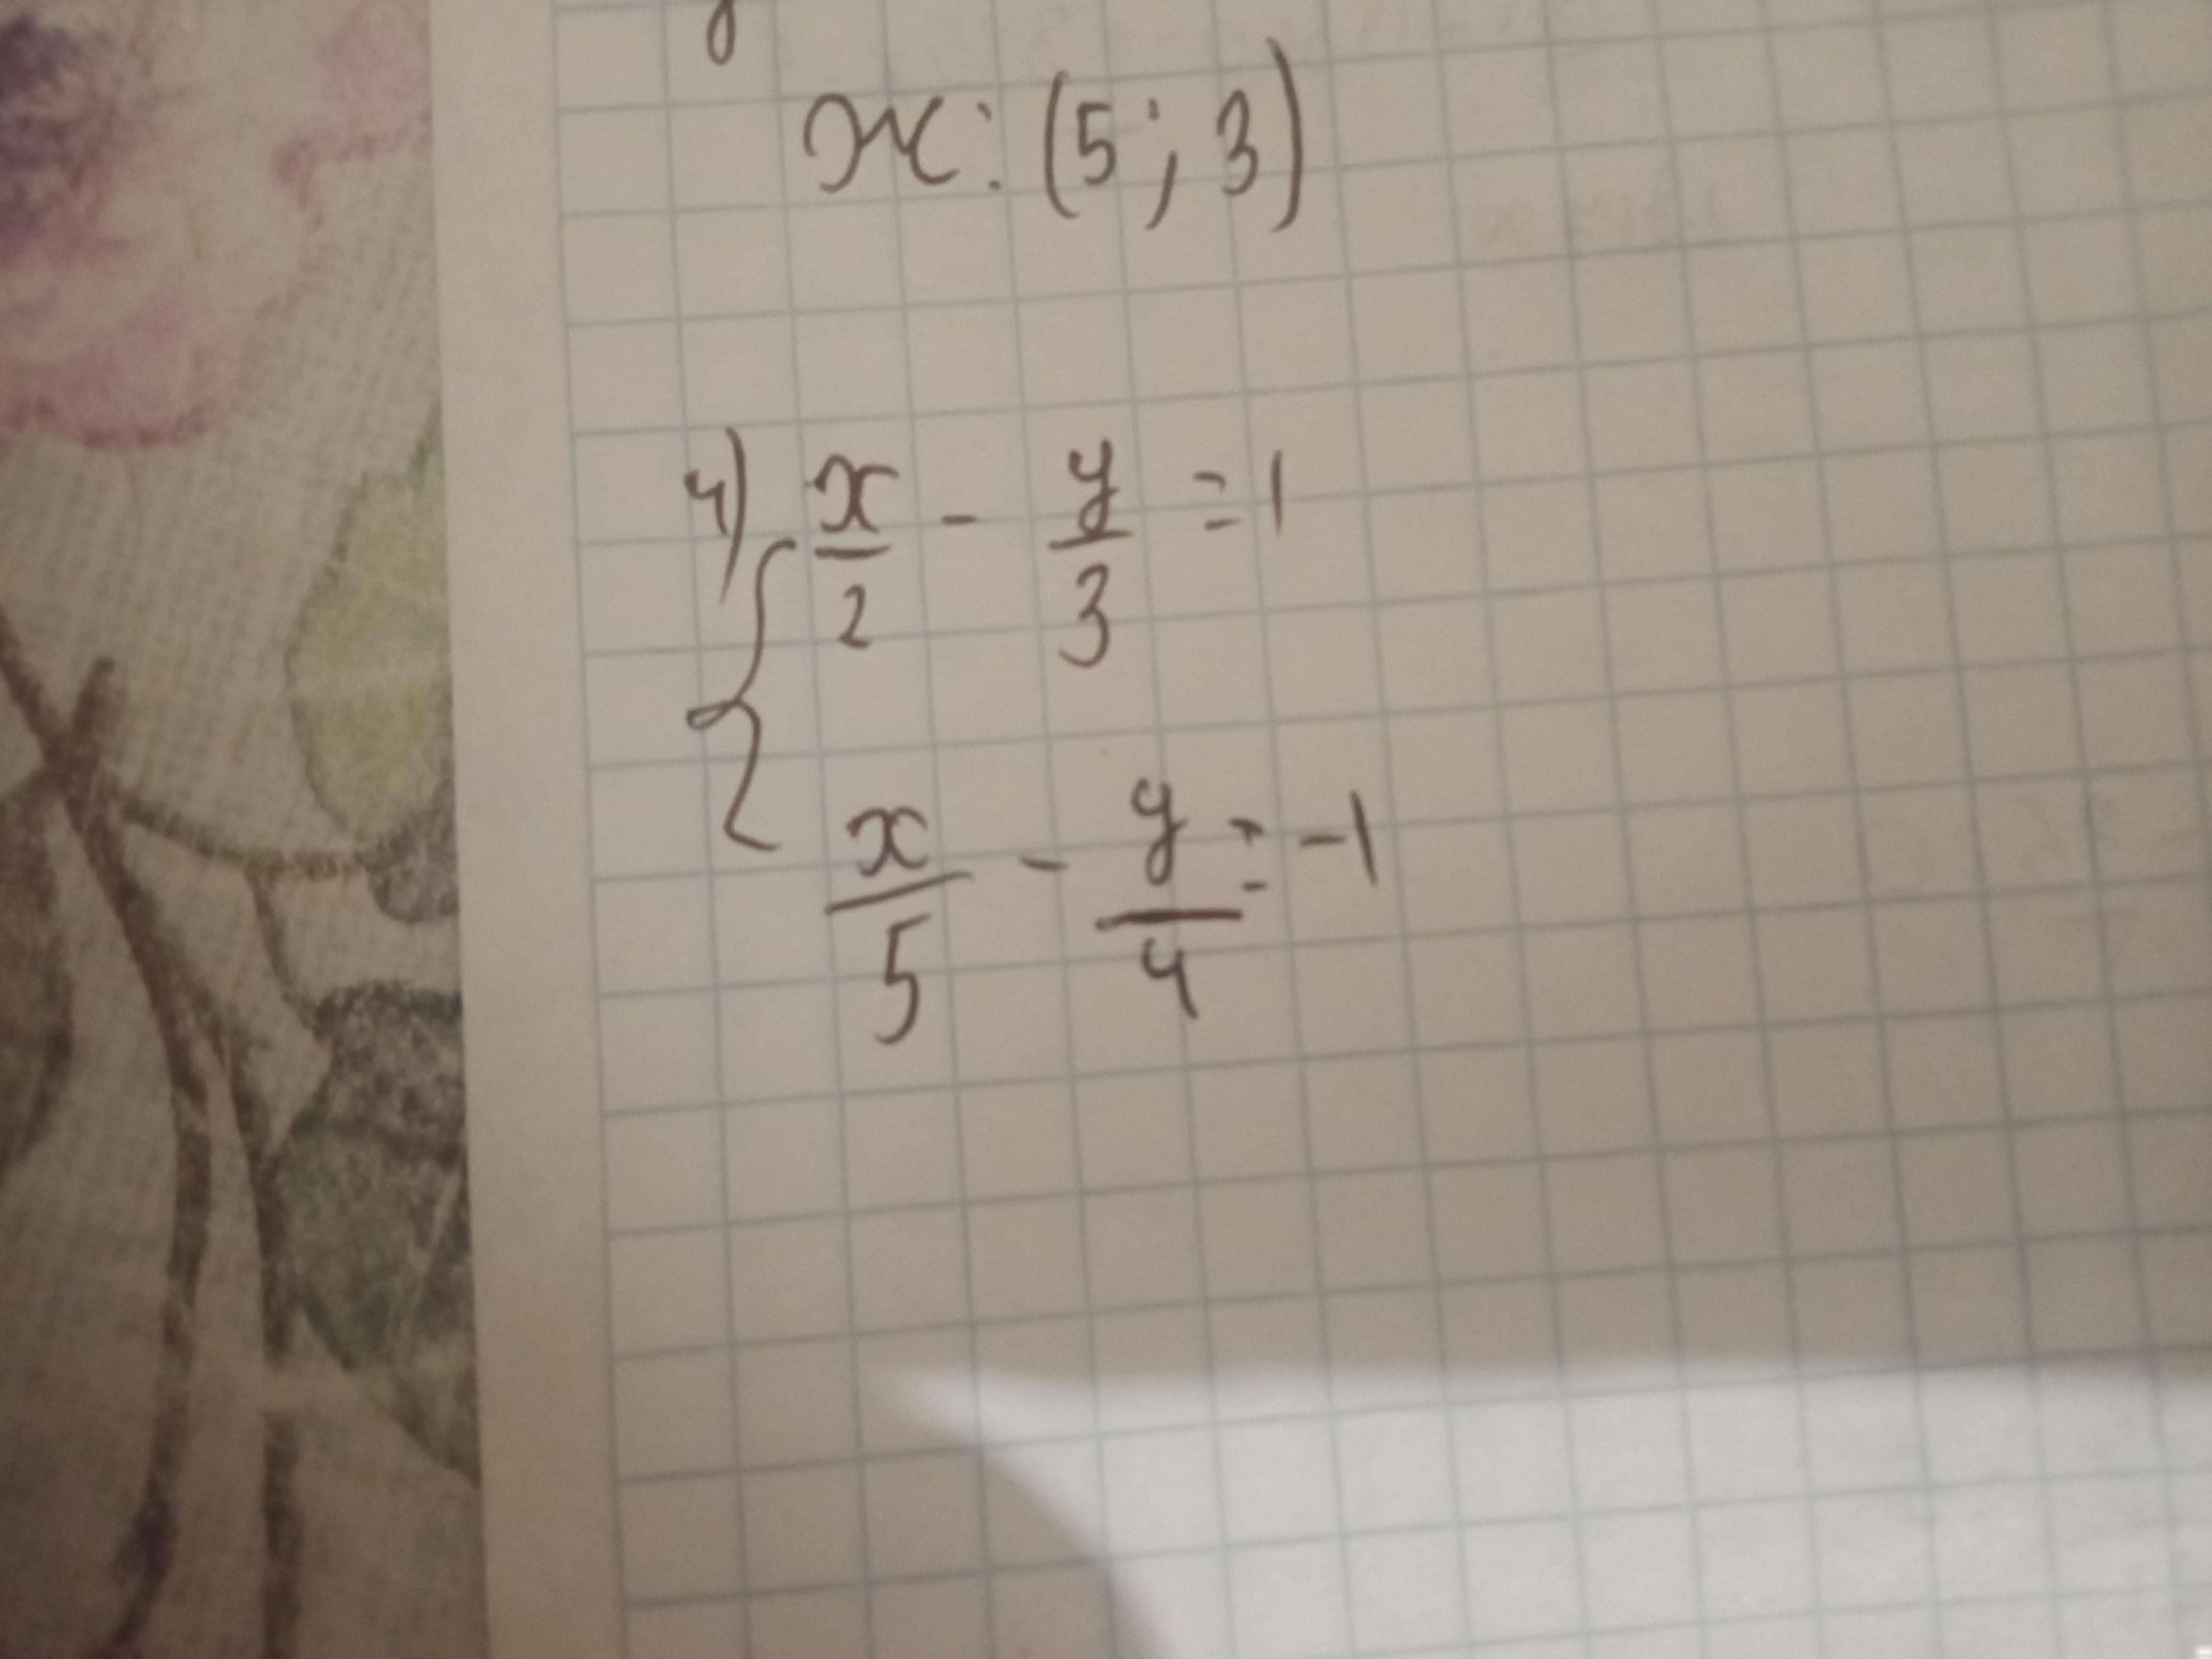 x: (5; 3)
4) x/2 - y/3 = 1
x/5 - y/4 = -1